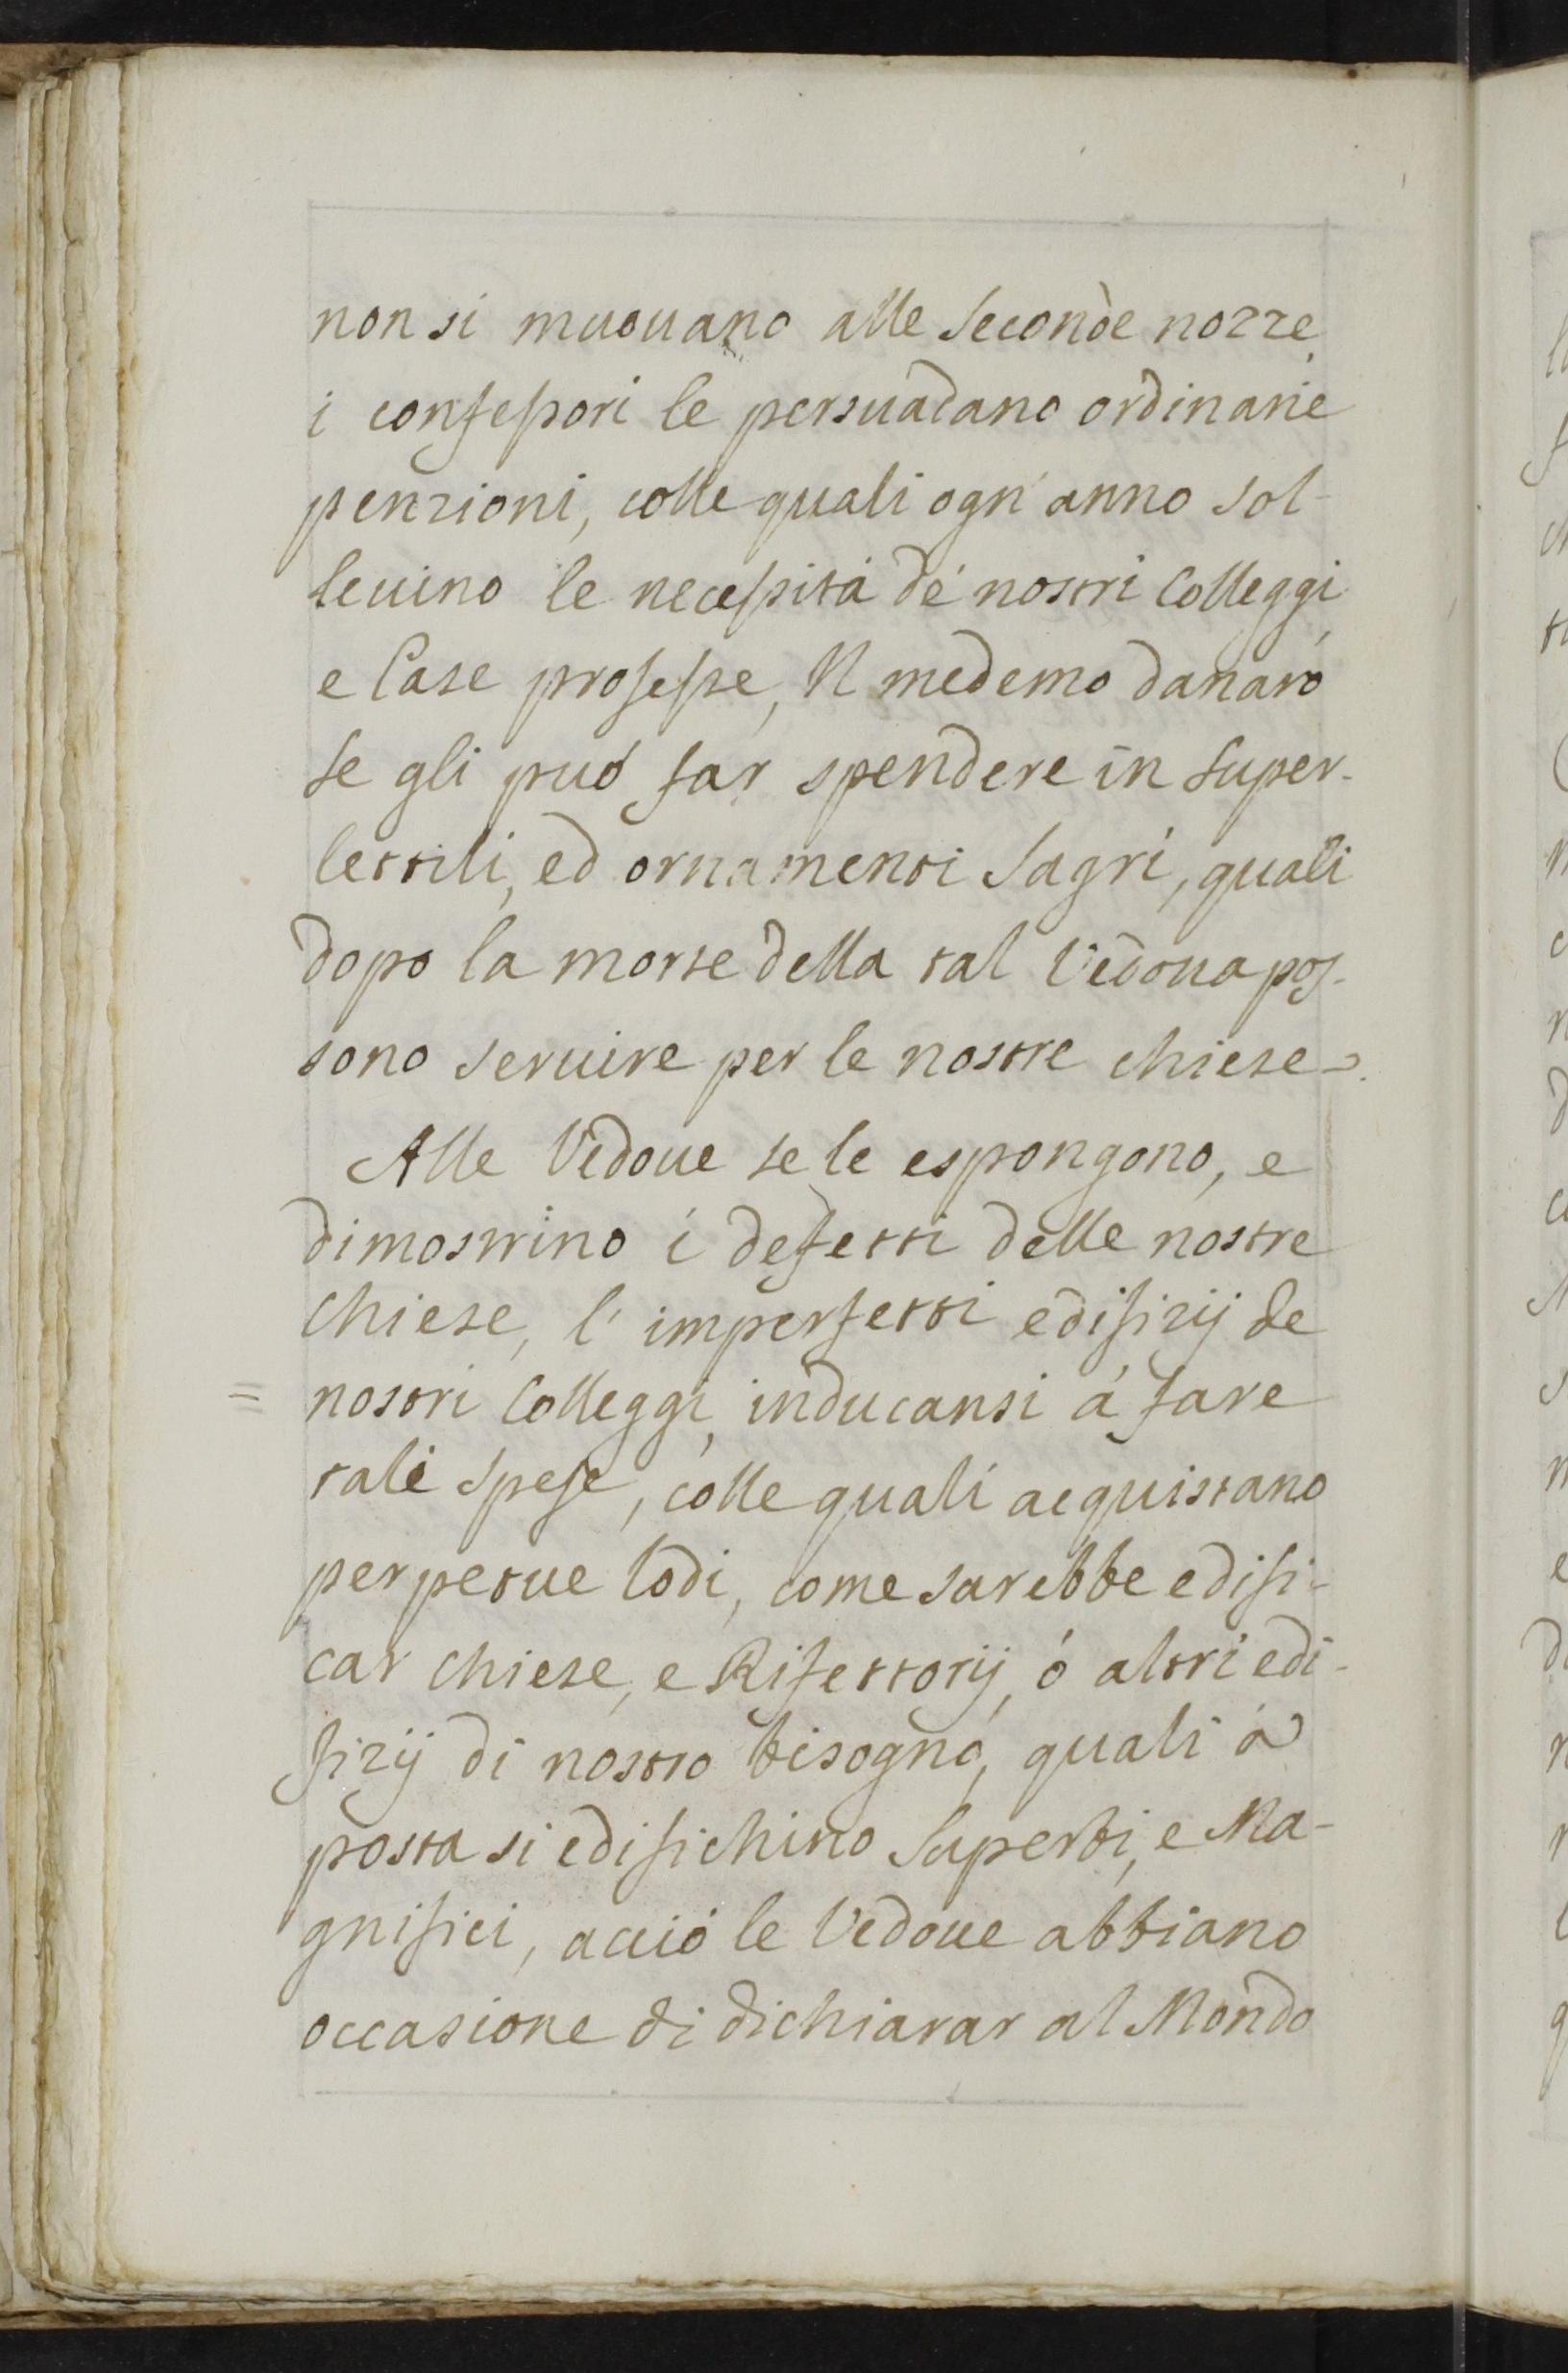 non si muouano alle seconde nozze,
i confessori le persuadano ordinarie
penzioni, colle quali ogn'anno sol-
leuino le necessitá de' nostri Colleggi
e Case professe, Il medemo danaro
se gli può far spendere in super-
lettili, ed ornamenti sagri, quali
dopo la morte della tal Vedoua pos-
sono seruire per le nostre chiese.
Alle Vedoue se le espongono, e
dimostrino i defetti delle nostre
chiese, l'imperfetti edifizij de
= nostri Colleggi, inducansi á fare
tali spese, colle quali acquistano
perpetue lodi, come sarebbe edifi-
car chiese, e Rifettorij, ó altri edi-
fizij di nostro bisogno, quali á
posta si edifichino superbi, e Ma-
gnifici, acció le Vedoue abbiano
occasione di dichiarar al Mondo